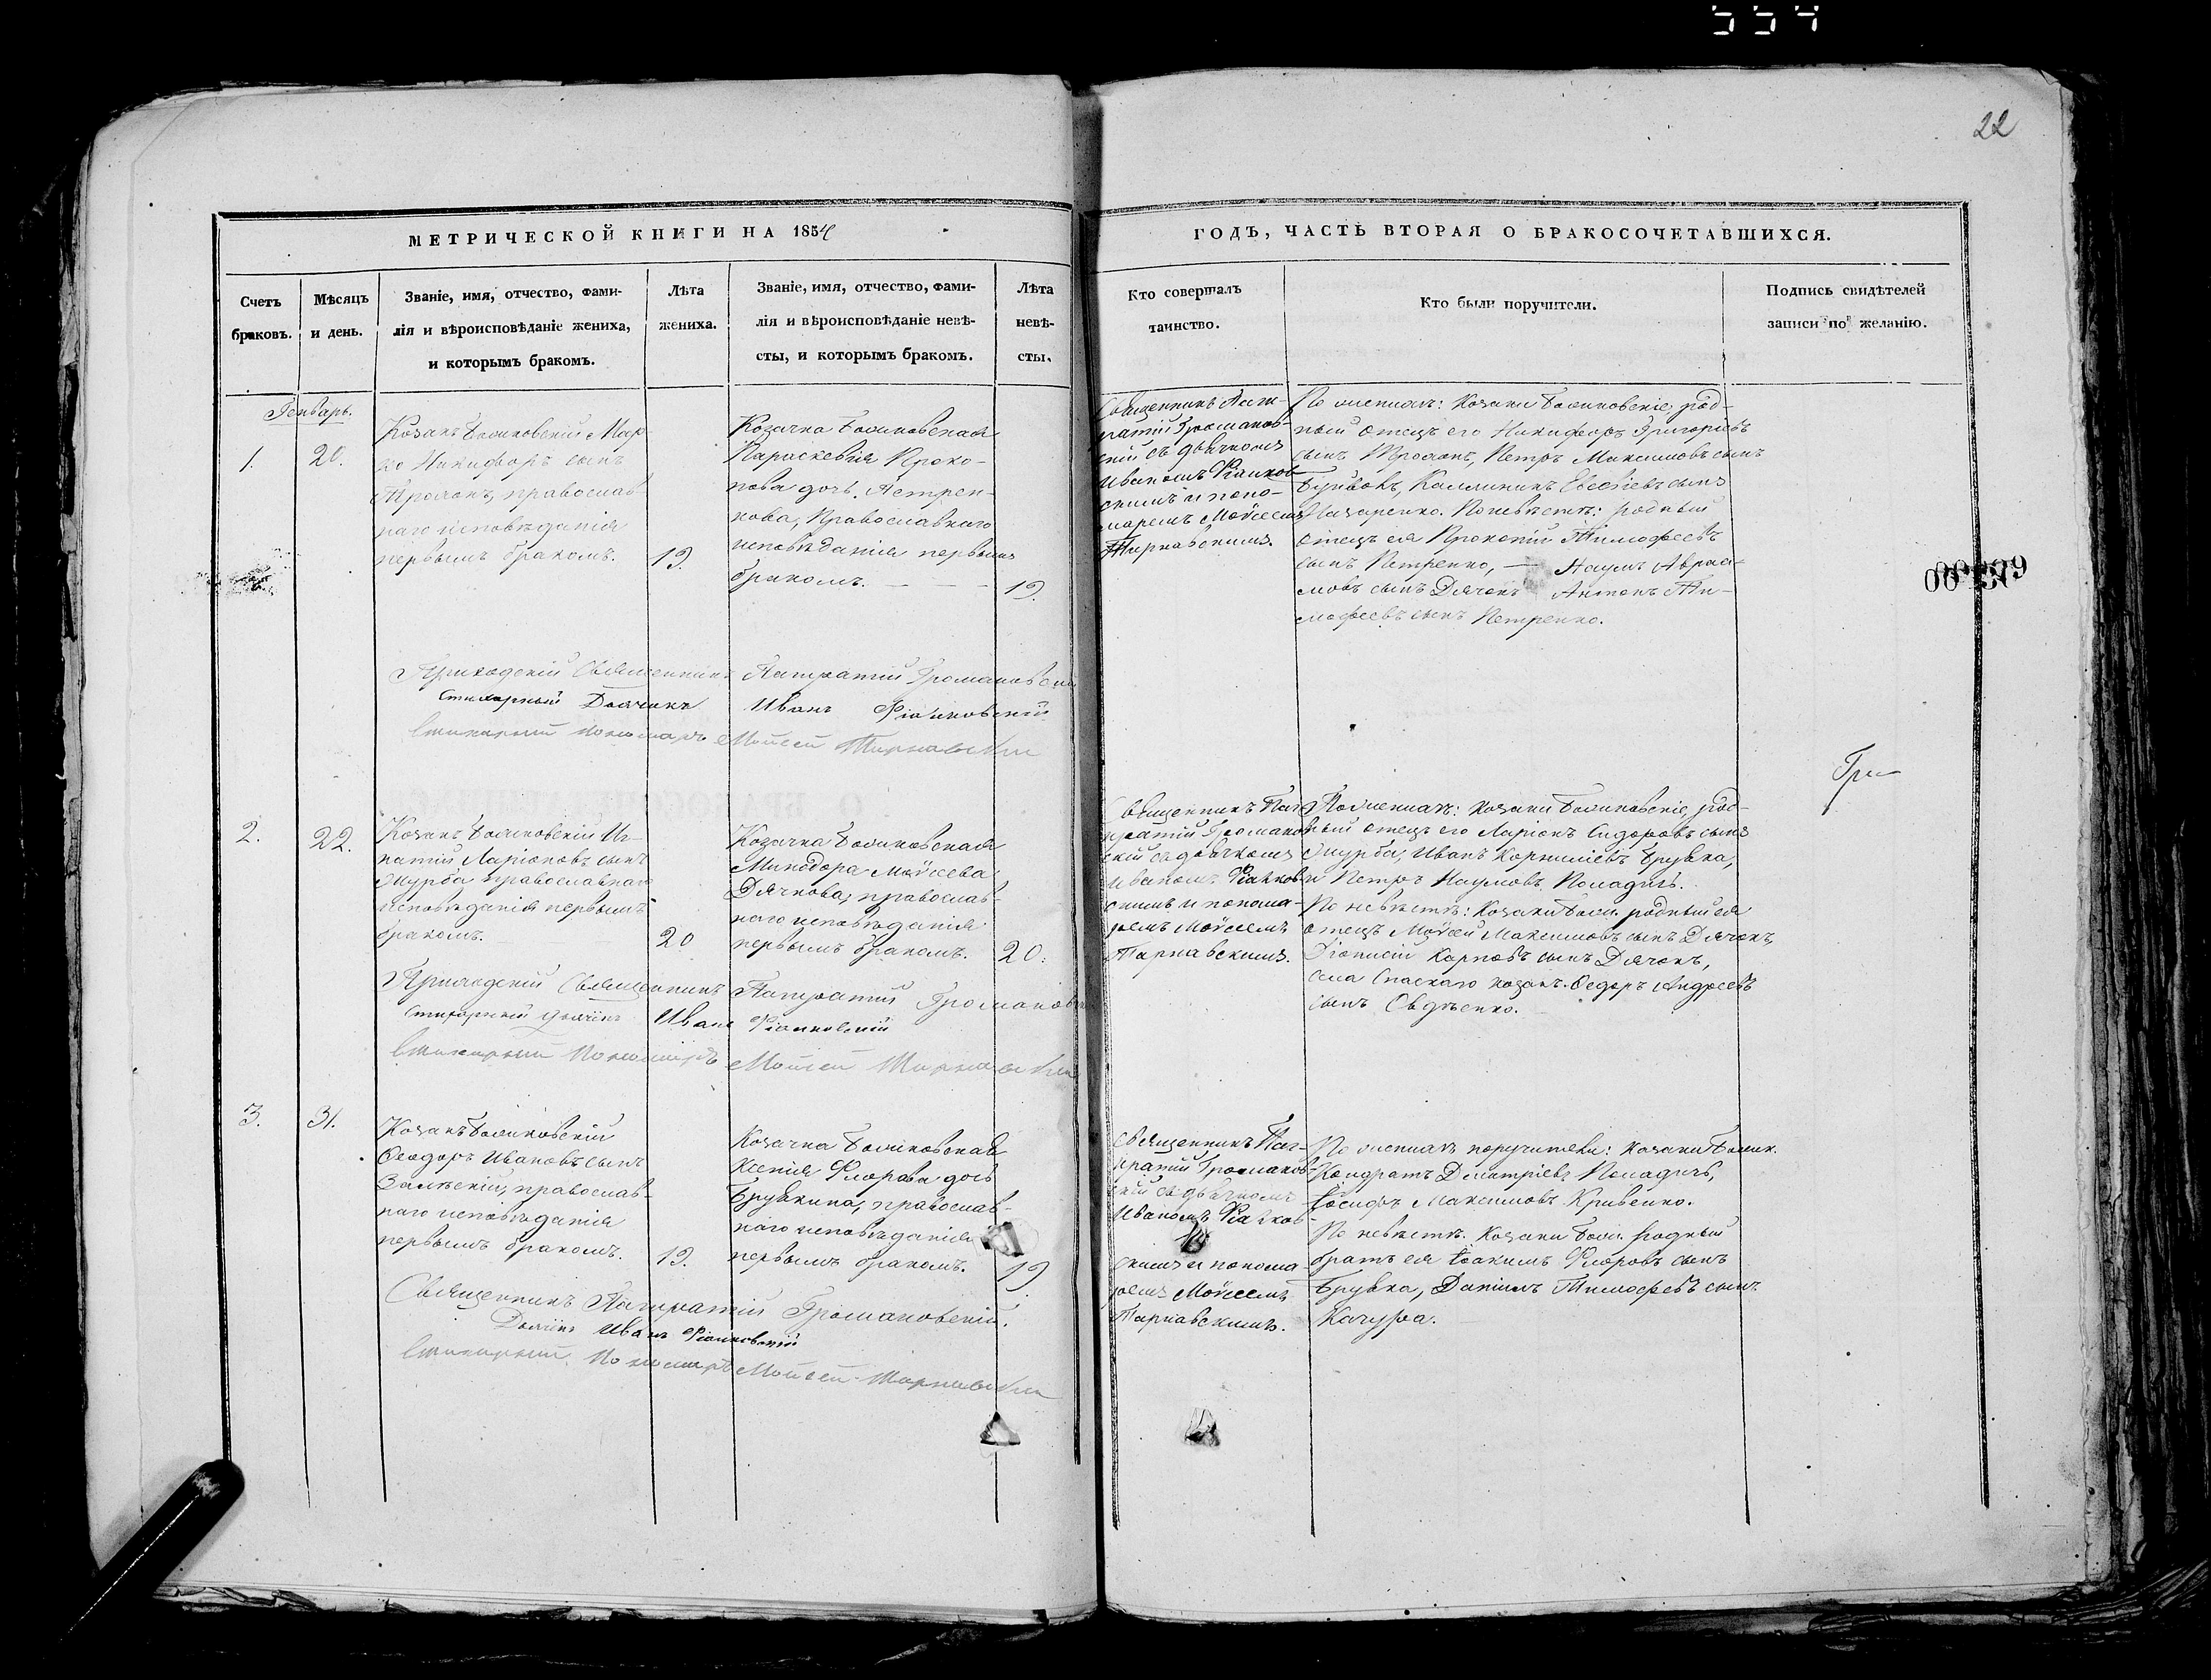 554
22
МЕТРИЧЕСКОЙ КНИГИ НА 1854
ГОДЪ, ЧАСТЬ ВТОРАЯ О БРАКОСОЧЕТАВШИХСЯ.
Счетъ
браковъ.
Мѣсяцъ
и день.
Званіе, имя, отчество, фами-
лія и вѣроисповѣданіе жениха,
и которымъ бракомъ.
Лѣта
жениха.
Званіе, имя, отчество, фами-
лія и вѣроисповѣданіе невѣ-
сты, и которымъ бракомъ.
Лѣта
невѣ-
сты.
Кто совершалъ
таинство.
Кто были поручители.
Подпись свидѣтелей
записи по желанію.
Генварь.
1.
20.
Козакъ
Никифоръ сынъ
православ-
наго исповѣданія
первымъ бракомъ.
19.
Козачка
Параскевія Проко-
пова дочь Петрен-
кова, Православнаго
исповѣданія первымъ
бракомъ.
19.
Священникъ Пан-
кратій Громаков-
скій съ дьячкомъ
Иваномъ Фіалков-
скимъ и поно-
маремъ Моѵсеемъ
Тарнавскимъ.
По женихѣ: козаки род-
ный отецъ его Никифоръ Григорьевъ
сынъ Петръ Максимовъ сынъ
Каллиникъ Евсѣевъ сынъ
Назаренко. По невѣстѣ: родный
отецъ ея Прокопій Тимофеевъ
сынъ Петренко, — Наумъ Авраа-
мовъ сынъ Дячокъ Антонъ Ти-
мофеевъ сынъ Петренко.
Приходскій Священникъ Панкратій Громаковскій
Стихарный Дьячокъ Иванъ Фіалковскій
Стихарный Пономарь Мойсей Тарнавскій
Гри
2.
22.
Козакъ Иг-
натій Ларіоновъ сынъ
православнаго
исповѣданія первымъ
бракомъ.
20
Козачка
Минодора Моѵсеева
Дячкова, православ-
наго исповѣданія
первымъ бракомъ.
20.
Священникъ Пан-
кратій Громаков-
скій съ дьячкомъ
Иваномъ Фіалков-
скимъ и понома-
ремъ Моѵсеемъ
Тарнавскимъ.
По женихѣ: козаки род-
ный отецъ его Ларіонъ Сидоровъ сынъ
Иванъ Корниліевъ Брувка,
и Петръ Наумовъ Поладичъ.
По невѣстѣ: Козаки родный ея
отецъ Моѵсей Максимовъ сынъ Дячокъ,
Діонисій Карповъ сынъ Дячокъ,
села Спаскаго козакъ Ѳедоръ Андреевъ
сынъ Овдѣенко.
Приходскій Священникъ Панкратій Громаковскій
Стихарный Дьячокъ Иванъ Фіалковскій
Стихарный Пономарь Мойсей Тарнавскій
3.
31.
Козакъ
Ѳеодоръ Ивановъ сынъ
Залѣскій, православ-
наго исповѣданія
первымъ бракомъ.
19.
Козачка
Ксенія Флорова дочь
Брувкина, православ-
наго исповѣданія
первымъ бракомъ.
19.
Священникъ Пан-
кратій Громаков-
скій съ дьячкомъ
Иваномъ Фіалков-
скимъ и понома-
ремъ Моѵсеемъ
Тарнавскимъ.
По женихѣ поручители: козаки
Кондратъ Дмитріевъ Поладичъ,
Іосифъ Максимовъ Кривенко.
По невѣстѣ. Козаки родный
братъ ея Іоакимъ Флоровъ сынъ
Брувка, Даніилъ Тимофеевъ сынъ
Качура.
Священникъ Панкратій Громаковскій.
Дьячокъ Иванъ Фіалковскій
Стихарный Пономарь Мойсей Тарнавскій